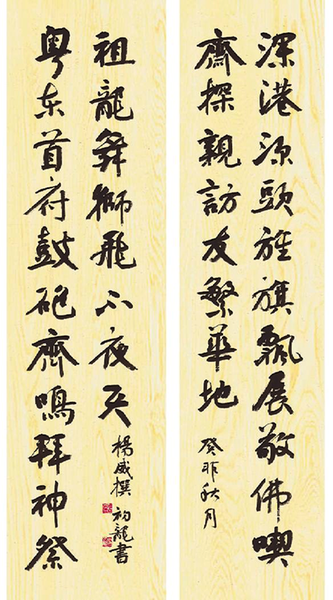 深港源頭旌旗飄展敬佛喫
齋探親訪友繁華地
癸卯秋月
粵东首府鼓砲齊鳴拜神祭
祖龍舞獅飛不夜天
楊威撰
初龍書